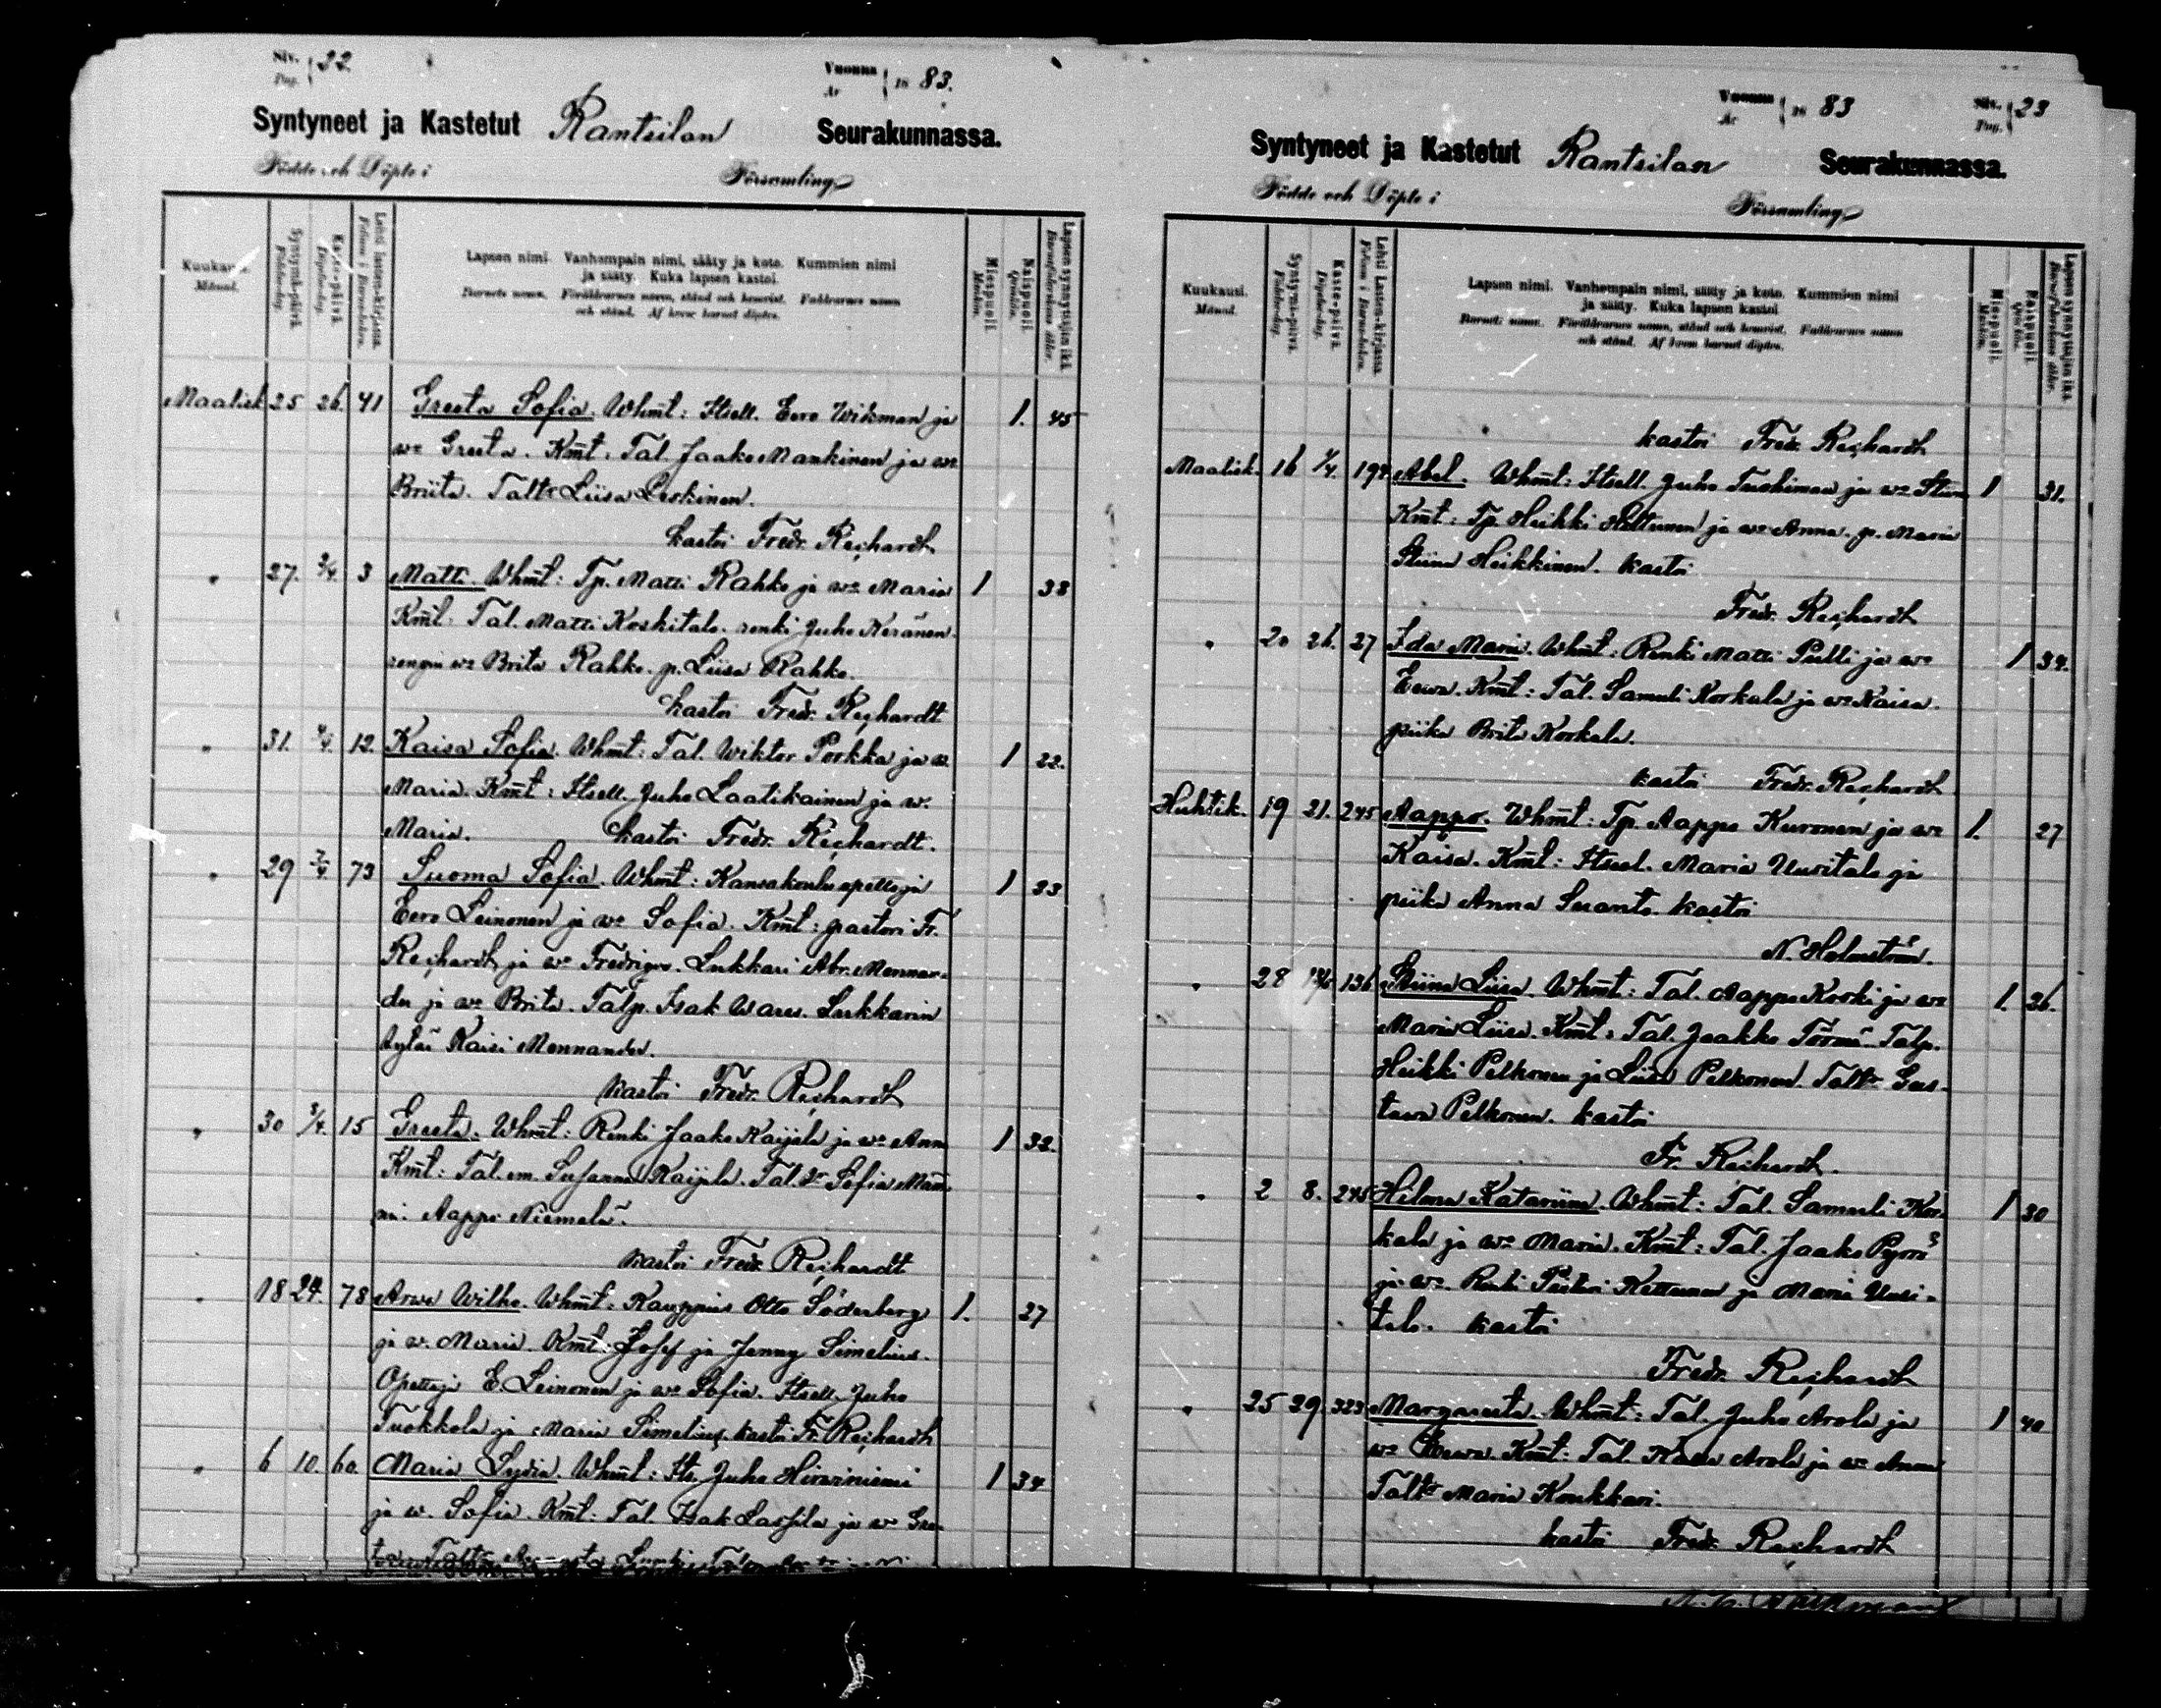 Siv. Pag. 22.
Vuonna År 1883.
Syntyneet ja Kastetut Rantsilan Seurakunnassa.
Födde och Döpte i Församling
Kuukausi. Månad.
Syntymä-päivä. Födelse-dag.
Kaste-päivä. Döpelse-dag.
Lehti lasten-kirjassa. Folium i Barnaboken.
Lapsen nimi. Vanhempain nimi, sääty ja koto. Kummien nimi
ja sääty. Kuka lapsen kastoi.
Barnets namn. Föräldrarnes namn, stånd och hemvist. Faddrarnes namn
och stånd. Af hvem barnet döptes.
Miespuoli. Mankön.
Naispuoli. Qvinkön.
Lapsen synnyttäjän ikä. Barnaföderskans ålder.
Maalisk. 25 26. 41 Greeta Sofia. Whmt: Itsell. Eero Wikman ja 1. 45
wo Greeta. Kmt. Tal. Jaako Mankinen ja wo
Briita. Taltr Liisa Leskinen.
kastoi Fredr. Reçhardt
" 27. 2/4. 3 Matti. Whmt: Tp. Matti Rahko ja wo Maria 1 38
Kmt: Tal. Matti Koskitalo. renki Juho Keränen.
rengin wo Brita Rahko. p. Liisa Rahko.
kastoi Fredr. Reçhardt
" 31. 4/4. 12 Kaisa Sofia. Whmt: Tal. Wiktor Porkka ja w. 1 22.
Maria. Kmt: Itsell. Juho Laatikainen ja w.
Maria. kastoi Fredr. Reçhardt.
" 29 7/4 73 Suoma Sofia. Whmt: Kansakoulu opettaja 1 33
Eero Leinonen ja wo Sofia. Kmt: pastori Fr.
Reçhardt ja wo Fredriqve. Lukkari Abr. Mennan-
der ja wo Brita. Talp. Isak Wares. Lukkarin
tytär Kaisi Mennander.
kastoi Fredr. Reçhardt
" 30 3/4. 15 Greeta. Whmt: Renki Jaako Kaijala ja wo Anna 1 32.
Kmt: Tal. em. Susanna Kaijala. Tal. tr Sofia
Aappo Niemelä.
kastoi Fredr. Reçhardt
" 18 24. 78 Arwo Wilho. Whmt: Kauppias Otto Söderberg 1. 27
ja w. Maria. Kmt: Josef ja Jenny Simelius.
Opettaja E. Leinonen ja wo Sofia. Itsell. Juho
Tuokkola ja Maria Simelius. kastoi Fr. Reçhardt
" 6 10. 60. Maria Lydia. Whmt: Its. Juho Hirwiniemi 1 34
ja w. Sofia. Kmt: Tal. Isak Lassila ja wo Gre-
Vuonna År 1883
Siv. Pag. 23
Syntyneet ja Kastetut Rantsilan Seurakunnassa.
Födde och Döpte i Församling
Kuukausi. Månad.
Syntymä-päivä. Födelse-dag.
Kaste-päivä. Döpelse-dag.
Lehti Lasten-kirjassa. Folium i Barnaboken.
Lapsen nimi. Vanhempain nimi, sääty ja koto. Kummien nimi
ja sääty. Kuka lapsen kastoi
Barnets namn. Föräldrarnes namn, stånd och hemvist. Faddrarnes namn
och stånd. Af hvem barnet döptes.
Miespuoli. Mankön.
Naispuoli. Qvinkön.
Lapsen synnyttäjän ikä. Barnaföderskans ålder.
kastoi Fredr. Reçhardt
Maalisk. 16 1/4. 194 Abel. Whmt: Itsell. Juho Tuohimaa ja wo Stiina 1 31.
Kmt: Tp. Heikki Hettunen ja wo Anna. p. Maria
Stiina Heikkinen. kastoi
Fredr. Reçhardt
" 20 26. 27 Ida Maria. Whmt: Renki Matti Pulli ja wo 1 34.
Eewa. Kmt: Tal. Samuli Korkala ja wo Kaisa.
piika Brita Korkala.
kastoi Fredr. Reçhardt
Huhtik. 19 21. 245 Aappo. Whmt: Tp. Aappo Kuronen ja wo 1. 27
Kaisa. Kmt: Itsel. Maria Uusitalo ja
piika Anna Suanto. kastoi
N. Holmström.
" 28 136 Stiina Liisa. Whmt: Tal. Aappo Koski ja wo 1. 26.
Maria Liisa. Kmt: Tal. Jaakko Törmä. Talp.
Heikki Pelkonen ja Liisa Pelkonen. Taltr Gus-
tawa Pelkonen. kastoi
Fr. Reichardt.
" 2 8. 245 Helma Katariina. Whmt: Tal. Samuli Kor- 1 30
kala ja wo Maria. Kmt: Tal. Jaako Pyrrö
ja wo. Renki Petteri Kettunen ja Maria Uusi-
talo. kastoi
Fredr. Reçhardt
" 25 29. 323 Margareeta. Whmt: Tal. Juho Arola ja 1 40
wo Eewa. Kmt: Tal. Arola ja wo Anna
Taltr Maria Konkkari.
kastoi Fredr. Reçhardt